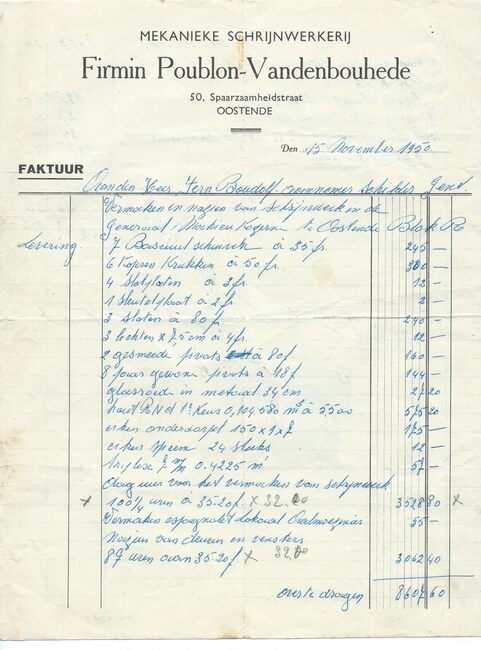 MEKANIEKE SCHRIJNWERKERIJ
Firmin Poublon-Vandenbouhede
50, Spaarzaamheidstraat
OOSTENDE
Den 15 November 1950
FAKTUUR
Aan den Heer Fern Boudolf aannemer Schilder Gent.
Vermaken en nazien van schrijnwerk in de
Generaal Mahieu Kazerne te Oostende Blok R
Levering 7 Bascuul à 35 fr. 245 —
6 Kopren Krukken à 50 fr. 300 —
4 Slotplaten à 3 fr. 12 —
1 sleutelplaat à 2 fr. 2 —
3 sloten à 80 fr. 240 —
3 x 7,5 cm à 4 fr. 12 —
2 gesmeede à 80 f. 160 —
8 paar gewone à 18 f. 144 —
glasroede in metaal 34 cm 27 20
hout R.N.d 1e Keus 0,104,580 m³ à 5500 575 20
eiken onderdorpel 150 x 9 x 7 175 —
eiken 24 stuks 12 —
0.4225 m² 57 —
voor het vermaken van schrijnwerk
x 100 1/4 uren à 35-20 f. x 32.00 3528 80 x
Vermaken espagnolet Lokaal 55 —
Nazien van deuren en vensters
87 uren aan 35-20 f x 32.00 3062 40
over te dragen 8607 60